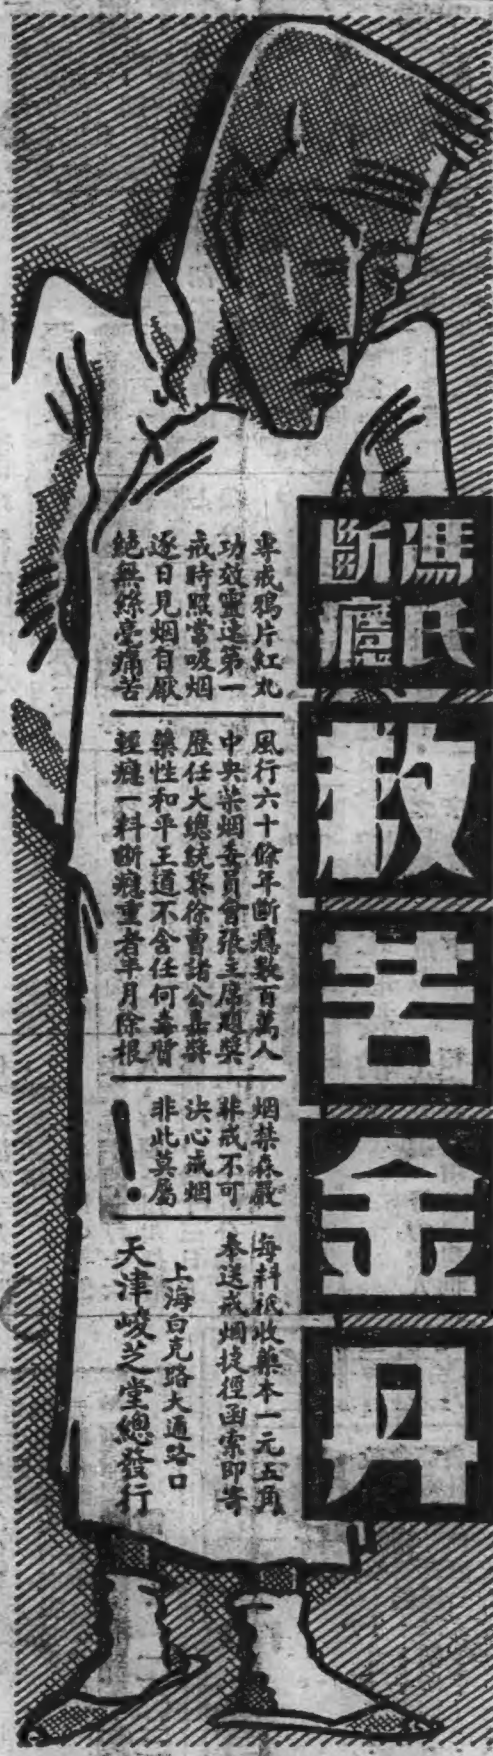 馮氏
斷癮
救苦金丹
專戒鴉片紅丸
功效靈速第一
戒時照常吸烟
逐日見烟自厭
絕無絲毫痛苦
風行六十餘年斷癮數百萬人
中央禁烟委員會張主席題獎
歷任大總統黎徐曹諸公嘉獎
藥性和平王道不含任何毒質
輕癮一料斷癮重者半月除根
烟禁森嚴
非戒不可
決心戒烟
非此莫屬
！
每料祇收藥本一元五角
奉送戒烟捷徑函索即寄
上海白克路大通路口
天津峻芝堂總發行